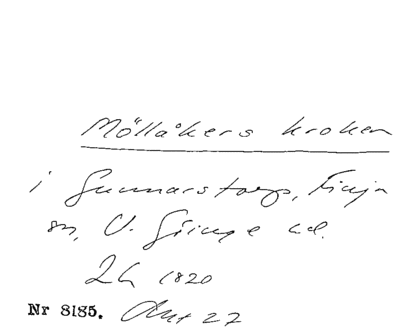 Möllåkers kroken
i Gunnarstorp, Finja
sn, V. Göinge hd.
Lh 1820
Nr 8185. Akt 27